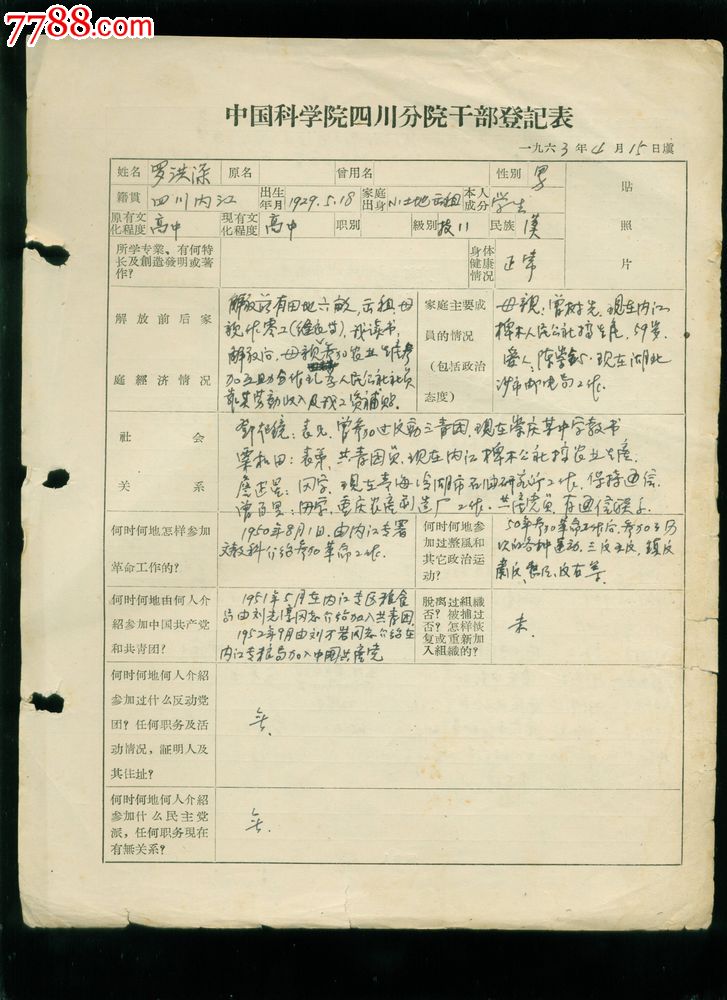 7788.com
中国科学院四川分院干部登記表
一九六3年4月15日填
姓名 罗洪深 原名 曾用名 性別 男 貼
籍貫 四川内江 出生年月 1929.5.18 家庭出身 小土地出租 本人成分 学生
原有文化程度 高中 現有文化程度 高中 职別 級別 技11 民族 漢 照
所学专業、有何特
长及創造發明或著
作?
身体
健康
情况
正常
片
解放前后家
庭經济情况
解放前有田地六亩，出租，母
親作零工(维 )，我读书，
解放后，母親参加农业生産，参
加互助合作,現为人民公社社员
靠其劳動收入及我工资補贴。
家庭主要成
員的情况
(包括政治
态度)
母親:曾树先，現在内江
椑木人民公社搞生産，59岁。
爱人:陈 ，現在湖北
沙市邮电局工作。
社会
关系
鄧 镜：表兄，曾参加过反動三青团，現在崇庆某中学教书
栗松田：表弟，共青团员，現在内江椑木公社搞农业生産。
詹 ：同学，現在青海冷湖市石油研究所工作，保持通信。
曾百里：同学，重庆农産 制造厂工作，共産党员，有通信联系。
何时何地怎样参加
革命工作的?
1950年8月1日，由内江专署
文教科介绍参加革命工作。
何时何地参
加过整風和
其它政治运
动?
50年参加革命工作后，参加了历
次的各种運动，三反五反，镇反
肃反，整風，反右等。
何时何地由何人介
紹参加中国共产党
和共青团?
1951年5月在内江专区粮食
局由刘光淳同志介绍加入共青团。
1952年9月由刘万岩同志介绍在
内江专粮局加入中國共産党
脫离过組織
否? 被捕过
否? 怎样恢
复或重新加
入組織的?
未.
何时何地何人介紹
参加过什么反动党
团? 任何职务及活
动情况，証明人及
其住址?
无.
何时何地何人介紹
参加什么民主党
派，任何职务現在
有無关系?
无.